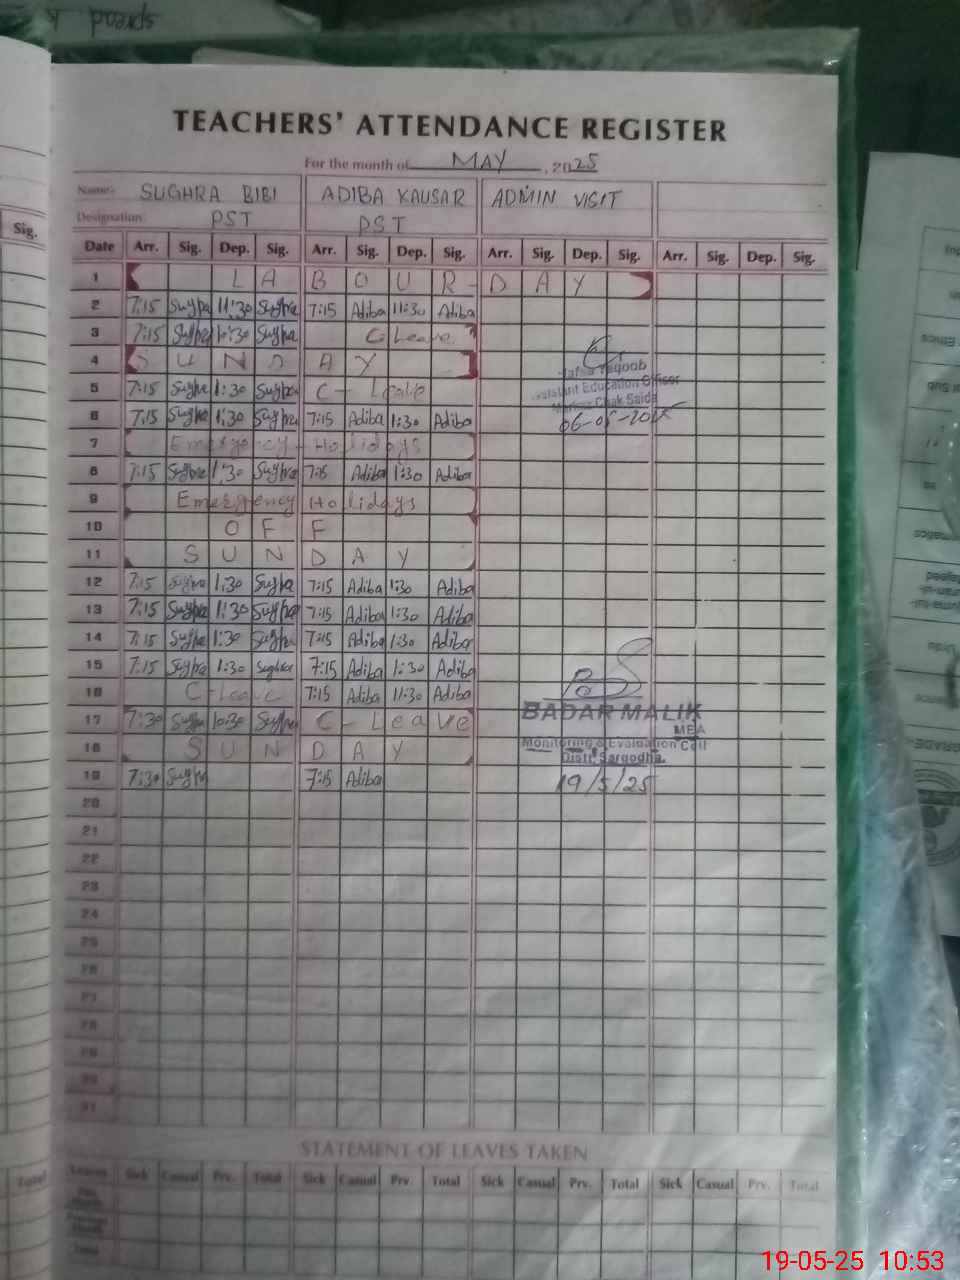 spread
TEACHERS' ATTENDANCE REGISTER
For the month of MAY , 2025
Name:- SUGHRA BIBI ADIBA KAUSAR ADMIN VISIT
Designation: PST PST
Sig.
Date Arr. Sig. Dep. Sig. Arr. Sig. Dep. Sig. Arr. Sig. Dep. Sig. Arr. Sig. Dep. Sig.
1 LABOUR - DAY
2 7:15 Sughra 11:30 Sughra 7:15 Adiba 11:30 Adiba
3 7:15 Sughra 10:30 Sughra C Leave
4 SUNDAY
5 7:15 Sughra 1:30 Sughra C - Leave
6 7:15 Sughra 1:30 Sughra 7:15 Adiba 1:30 Adiba
7 Emergency - Holidays
8 7:15 Sughra 1:30 Sughra 7:15 Adiba 1:30 Adiba
9 Emergency Holidays
10 OFF
11 SUNDAY
12 7:15 Sughra 1:30 Sughra 7:15 Adiba 1:30 Adiba
13 7:15 Sughra 1:30 Sughra 7:15 Adiba 1:30 Adiba
14 7:15 Sughra 1:30 Sughra 7:15 Adiba 1:30 Adiba
15 7:15 Sughra 1:30 Sughra 7:15 Adiba 1:30 Adiba
16 C-Leave 7:15 Adiba 11:30 Adiba
17 7:30 Sughra 10:30 Sughra C - Leave
18 SUNDAY
19 7:30 Sughra 7:15 Adiba
20
21
22
23
24
25
26
27
28
29
30
31
Yaqoob
Assistant Education Officer
Chak Saida
06-05-2025
BADAR MALIK
MEA
Monitoring & Evaluation Cell
Distt. Sargodha.
19/5/25
STATEMENT OF LEAVES TAKEN
Leaves Sick Casual Prv. Total Sick Casual Prv. Total Sick Casual Prv. Total Sick Casual Prv. Total
Total
Total
19-05-25 10:53